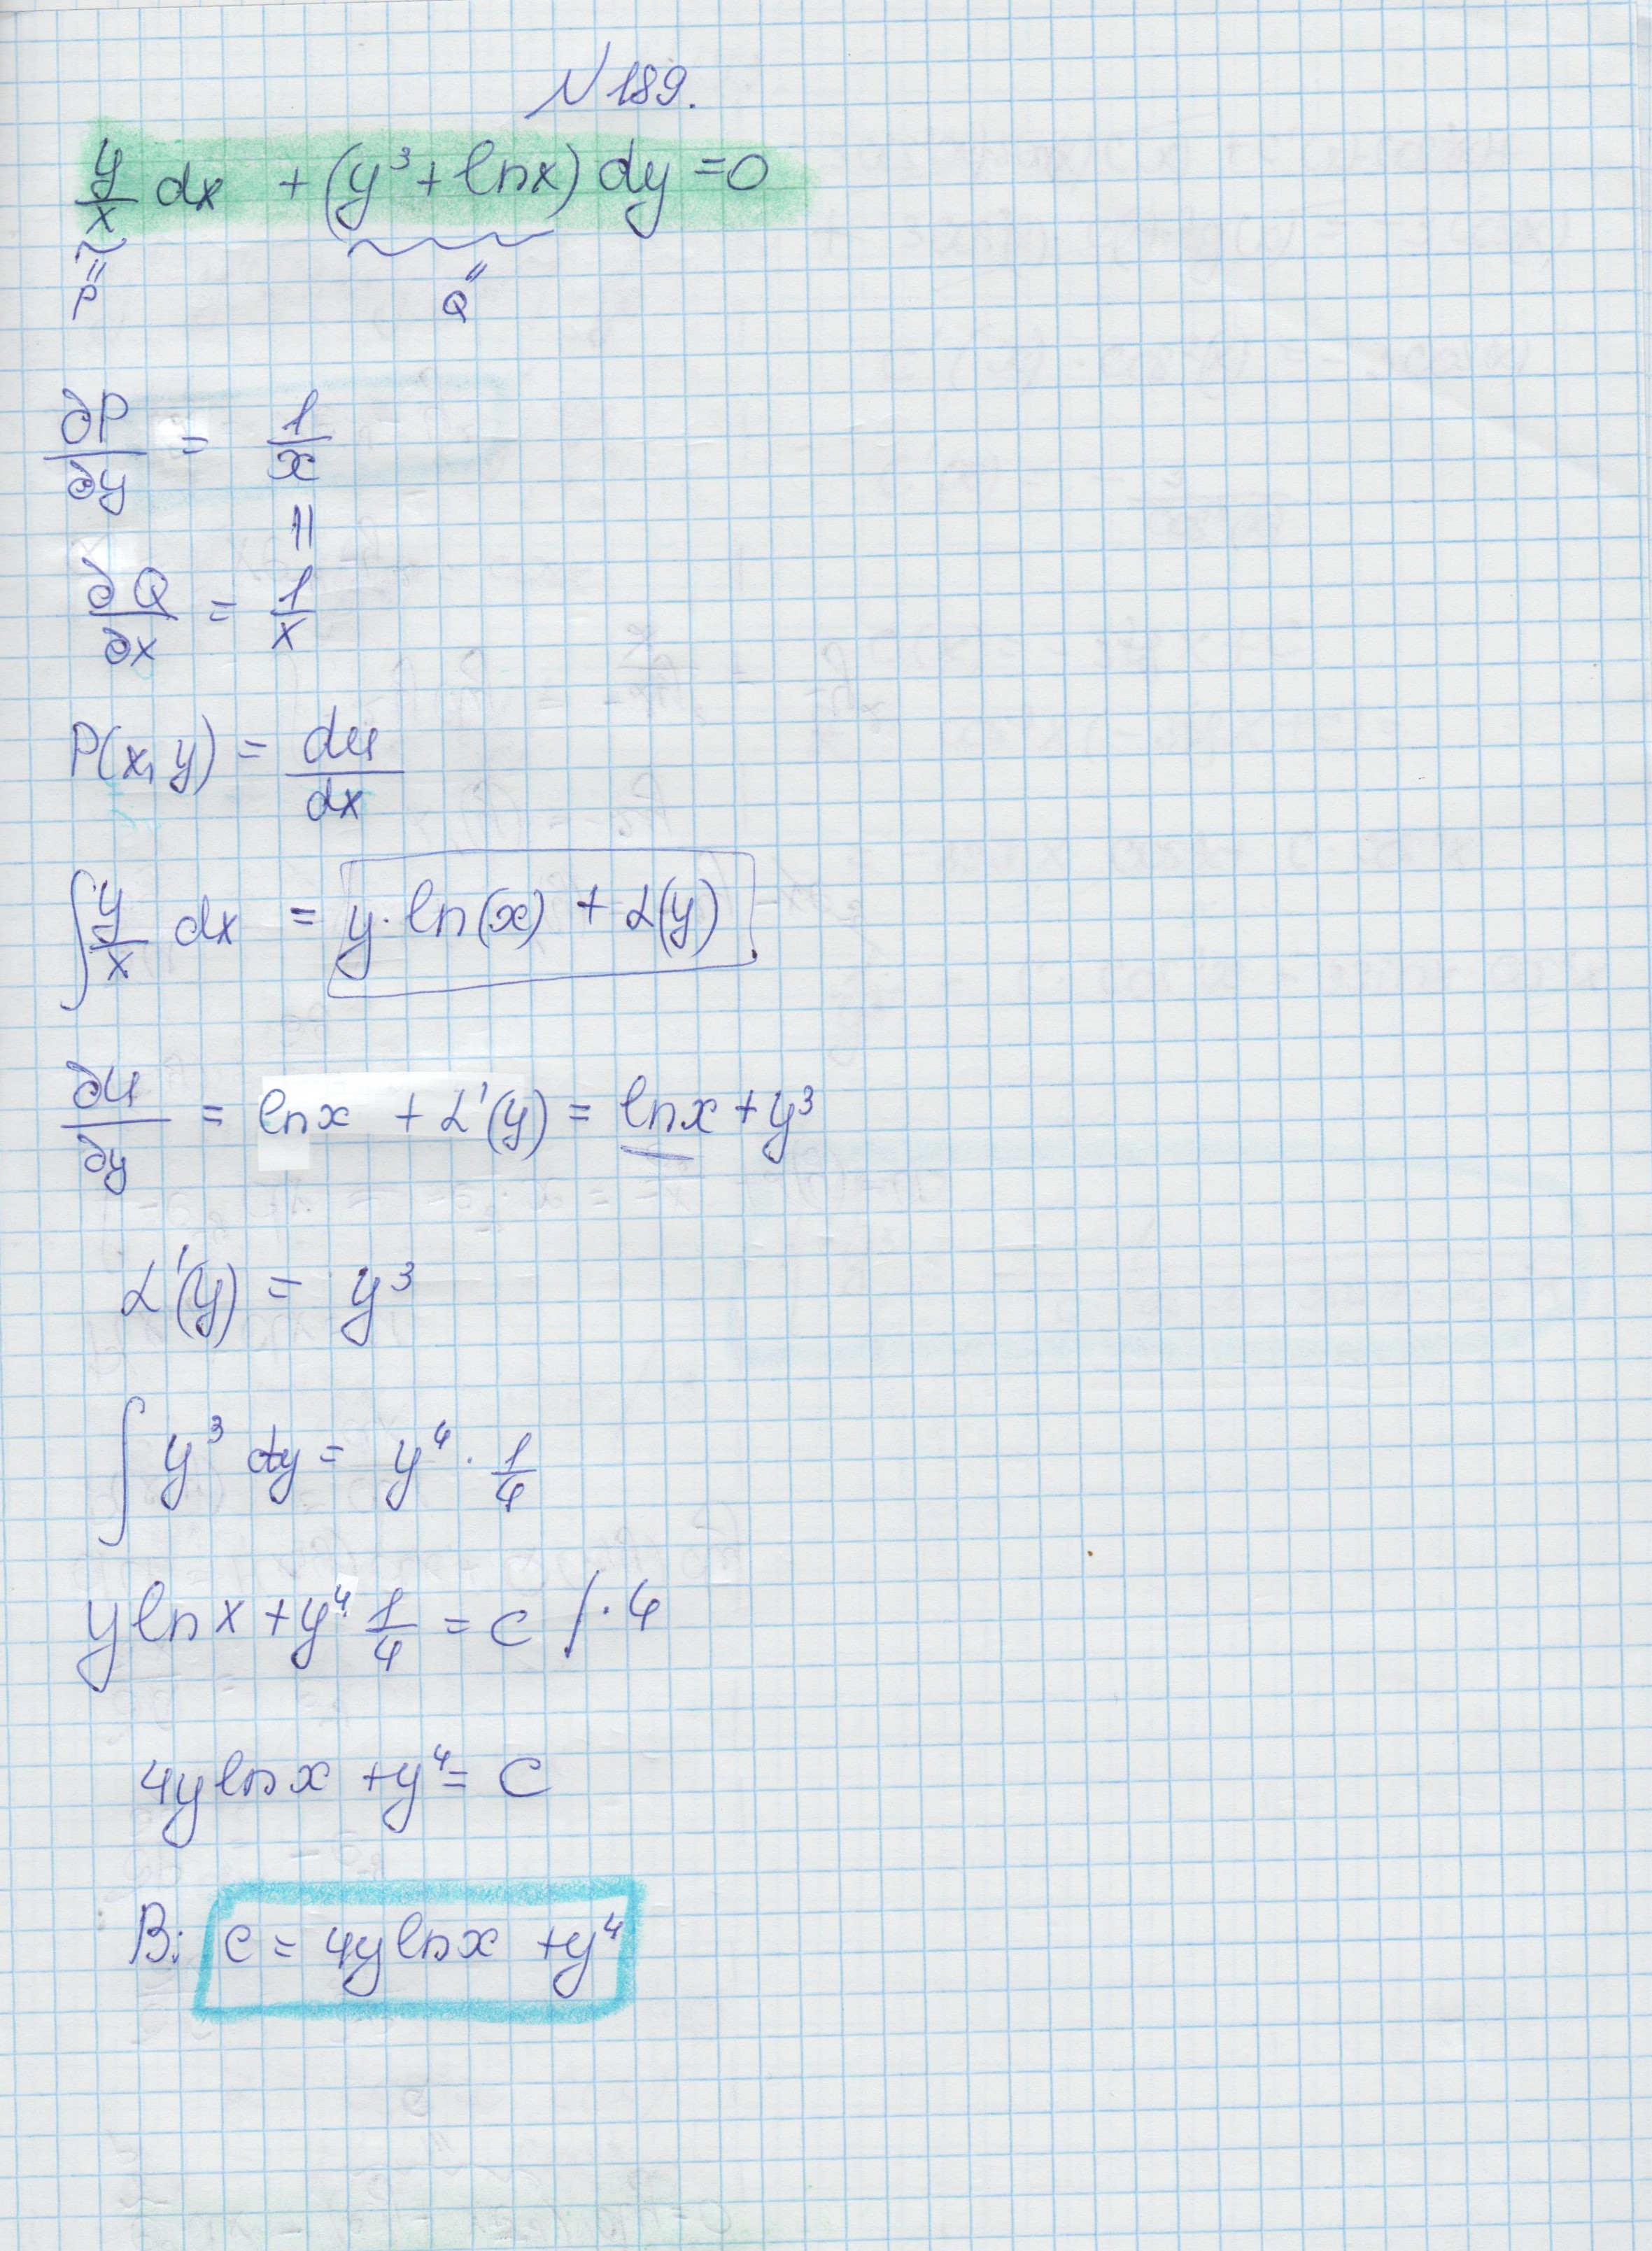 N 189.
y/x dx + (y³ + ln x) dy = 0
= =
P Q
∂P/∂y = 1/x
=
∂Q/∂x = 1/x
P(x, y) = du/dx
∫ y/x dx = y · ln(x) + α(y)
∂u/∂y = ln x + α'(y) = ln x + y³
α'(y) = y³
∫ y³ dy = y⁴ · 1/4
y ln x + y⁴ · 1/4 = c / · 4
4y ln x + y⁴ = C
В: c = 4y ln x + y⁴